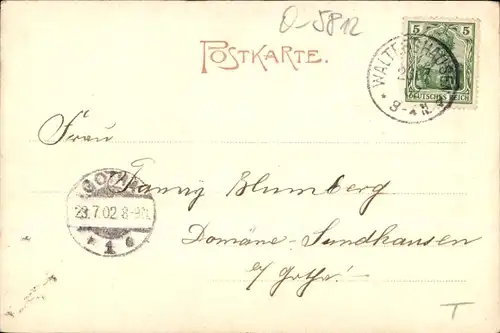 O-5812
POSTKARTE.
5 5
DEUTSCHES REICH
WALTERSHAUSEN
3-4 N.
Frau
Fanny Blumberg
GOTHA
23.7.02 8-9N.
1
Domäne-Sundhausen
b/ Gotha!
T